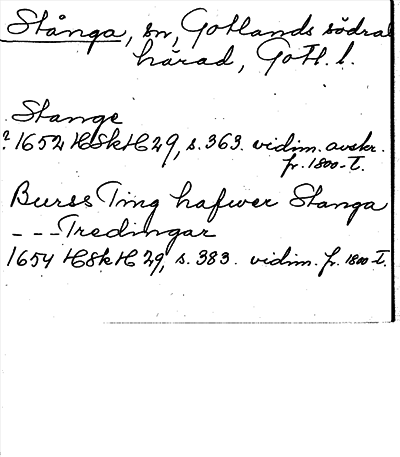 Stånga, sn, Gotlands södra
härad, Gotl. l.
Stange
? 1652 HSkH 29, s. 363. vidim. avskr.
fr. 1800-t.
Burss Ting hafwer Stanga
- - - Tredingar
1654 HSkH 29, s. 383. vidim. fr. 1800-t.